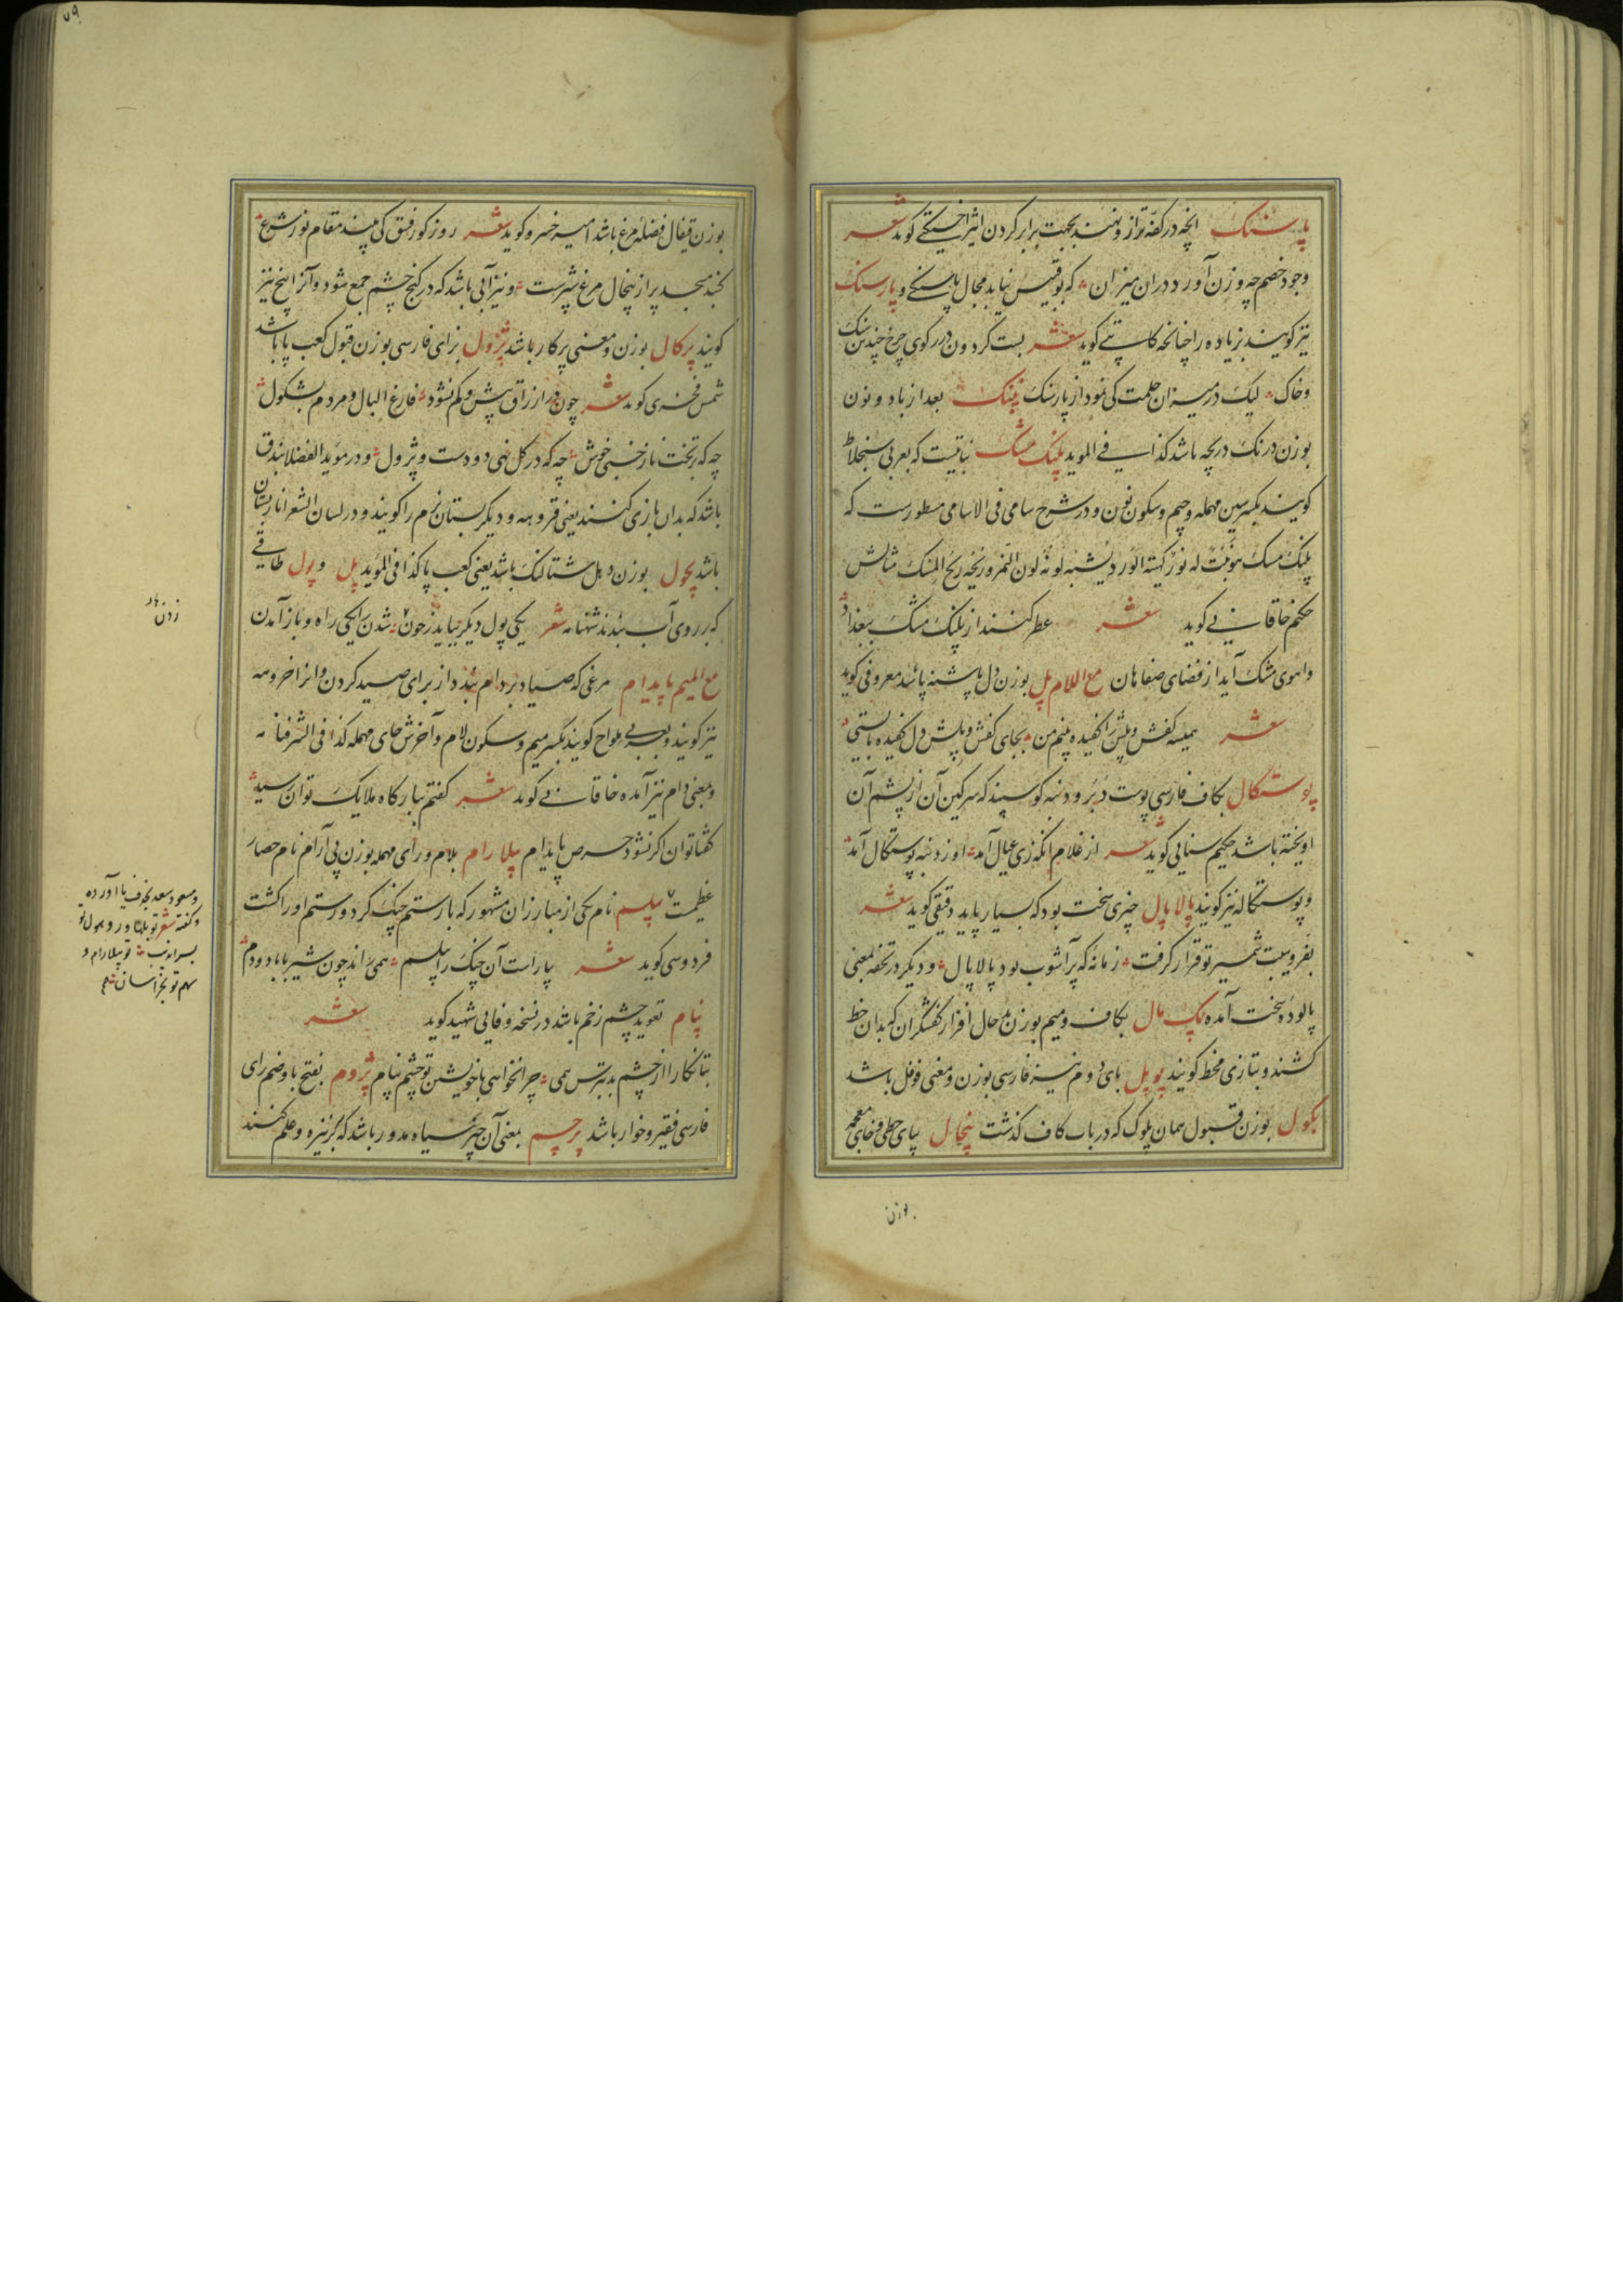 پاسنک انچه در کفهٔ ترازو نهند بجهت برابر کردن اثیر اخسیکتی کوید شعر
وجود خصم چه وزن آورد دران میزان که بوقبیس نیاید مجال پاسنکی و پارسنک
نیز کویند بزیاده را چنانچه کاتبی کوید شعر بست کردون در کوی چرخ چندین سنک
وخاک لیک در میزان حلمت کی نمود از پارسنک پننک بعد از با دو نون
بوزن درنک دریچه باشد کذا فی الموید پلنک مشک نباتیست که بعربی سنجلاط
کویند بکسر سین مهمله وجیم وسکون نون و در شرح سامی فی الاسامی مسطورست که
پلنک مسک هو نبت له نور کهیئة الورد یشبه لونه لون النمر وریحه ریح المسک مثالش
حکیم خاقانی کوید شعر عطر کنند از پلنک مشک ببغداد
واهوی مشک آید از فضای صفاهان مع اللام پل بوزن دل پاشنه پا باشد معروفی کوید
شعر همیشه کفش و پلش را کفیده بینم من بجای کفش و پلش دل کفیده بایستی
پوستکال بکاف فارسی پوست دبر و دنبه کوسپند که سرکین آن از پشم آن
اویخته باشد حکیم سنایی کوید شعر از غلام انکه زی عیال آمد او ز دنبه پوستکال آمد
و پوستکاله نیز کویند پالاپال چیزی سخت بود که بسیار پاید دقیقی کوید شعر
بفر و هیبت شمشیر تو قرار کرفت زمانهٔ که پرآشوب بود پالاپال و دیکر در تحفه بمعنی
پالوده سخت آمده پک مال بکاف و میم بوزن بدحال افزار کفشکران که بدان خط
کشند و بتازی مخط کویند پوپل بای دوم نیز فارسی بوزن و معنی فوفل باشد
پکول بوزن قبول همان پلوک که در باب کاف کذشت پیخال بیای حطی و خای معجمه
بوزن
بوزن قیفال فضلهٔ مرغ باشد امیر خسرو کوید شعر روز کور فسق کی بیند مقام نور شرع
کنبد مسجد پر از پیخال مرغ شپرست و نیز آبی باشد که در کنج چشم جمع شود و آنرا پیخ نیز
کویند پرکال بوزن و معنی پرکار باشد پژول بزای فارسی بوزن قبول کعب پا باشد
شمس فخری کوید شعر چون در ارزاق بیش و کم نشود فارغ البال و مردم بشکول
چه که بر تخت ناز خسبی خوش چه که در کل نهی دو دست و پژول و در مؤید الفضلا بندق
باشد که بدان بازی کنند یعنی قروهه و دیکر پستان نرم را کویند و در لسان الشعرا نار پستان
باشد پچول بوزن دبل شتالنک باشد یعنی کعب پا کذا فی الموید پل و پول طاقی
که بر روی آب بندند شهنامه شعر یکی پول دیکر بباید زدن شدن را یکی راه و باز آمدن
زدن
مع المیم پایدام مرغی که صیاد بر دام بندد از برای صید کردن و انرا خروسه
نیز کویند و بعربی ملواح کویند بکسر میم و سکون لام و آخرش حای مهمله کذا فی الشرفنامه
و بمعنی دام نیز آمده خاقانی کوید شعر کفتم ببارکاه ملایک توان رسید
کفتا توان اکر نشود حرص پایدام پیلارام بلام و رای مهمله بوزن پی آرام نام حصار
عظیمست پیلسم نام یکی از مبارزان مشهور که با رستم جنک کرد و رستم او را کشت
ومسعود سعد بحذف یا آورده
فردوسی کوید شعر بیاراست آن جنک را پیلسم همی راند چون شیر با باد و دم
پنام تعوید چشم زخم باشد در نسخه وفایی شهید کوید شعر
بتا نکارا از چشم بد بترس همی چرا نخواهی با خویشتن تو چشم پنام پژوم بفتح با و ضم زای
فارسی فقیر و خوار باشد پرچم بمعنی آن چیز سیاه مدور باشد که بر نیزه و علم کنند